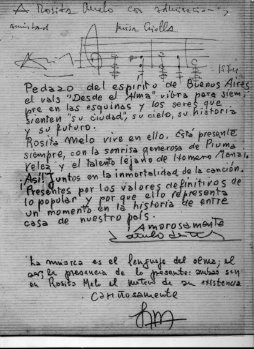 A Rosita Melo con admiración y
amistad
1974
Pedazo del espíritu de Buenos Aires
el vals "Desde el Alma" vibra para siem-
pre en las esquinas y los seres que
sienten "su ciudad", su cielo, su historia
y su futuro.
Rosita Melo vive en ello. Está presente
siempre, con la sonrisa generosa de Piuma
Velez y el talento lejano de Homero Manzi.
¡Así! Juntos en la inmortalidad de la canción.
Presentes por los valores definitivos de
lo popular y por que ello representa
un momento en la historia de entre
casa de nuestro país.
Amorosamente
La música es el lenguaje del alma; el
la presencia de lo presente: ambas son
en Rosita Melo el motivo de su existencia
Cariñosamente